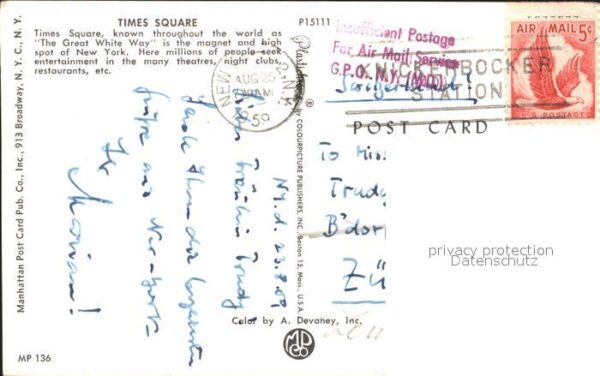 TIMES SQUARE
Times Square, known throughout the world as
"The Great White Way" is the magnet and high
spot of New York. Here millions of people seek
entertainment in the many theatres, night clubs,
restaurants, etc.
P15111
Manhattan Post Card Pub. Co., Inc., 913 Broadway, N. Y. C., N. Y.
MP 136
NEW
N.Y.
AUG 25
AM
1959
Insufficient Postage
For Air Mail Service
G.P.O. N.Y.
KNICKERBOCKER
STATION
AIR MAIL 5¢
U.S. POSTAGE
POST CARD
Plastichrome ® by COLOURPICTURE PUBLISHERS, INC., Boston 15, Mass., U.S.A.
N.Y. d. 23.8.59
Liebes Fräulein Trudy
Sende Ihnen die herzlichsten
Grüsse aus New York
Ihr
To Miss
Trudy
B'dor
Zü
privacy protection
Datenschutz
Color by A. Devaney, Inc.
MPC
CO